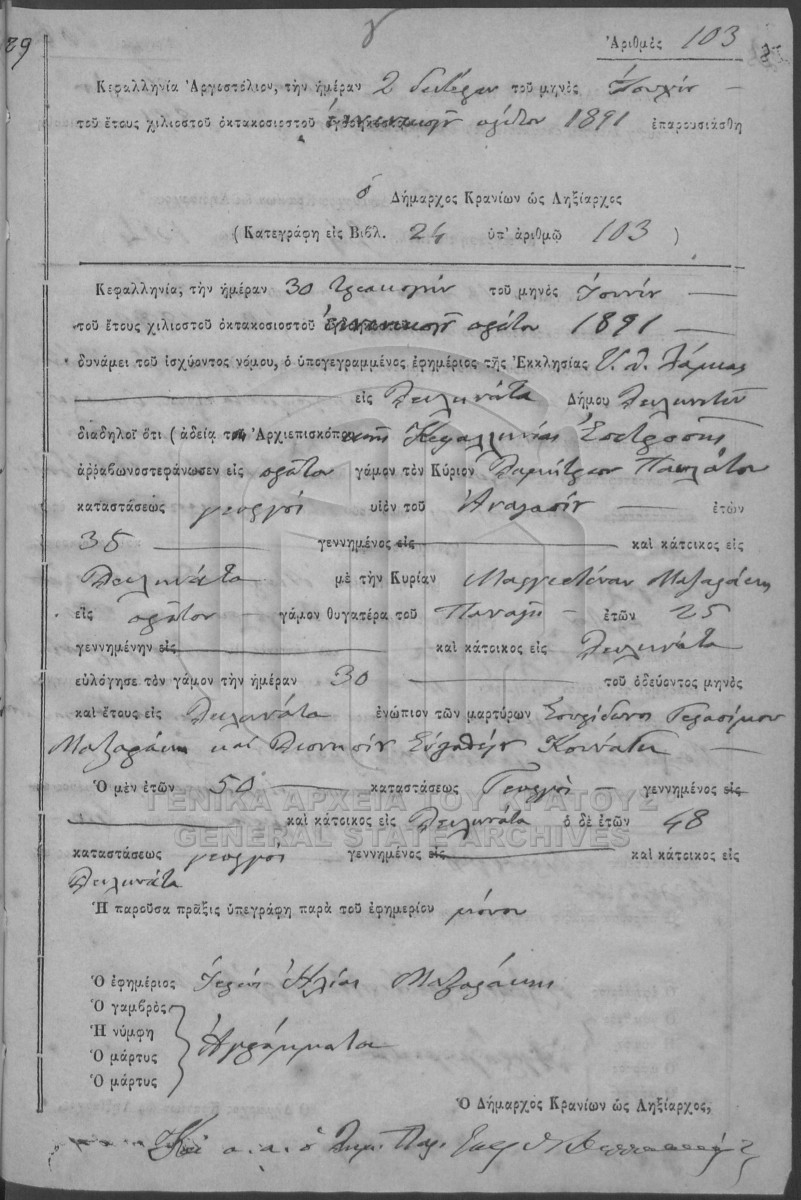 89
Ἀριθμὸς 103
Κεφαλληνία Ἀργοστόλιον, τὴν ἡμέραν 2 δευτέραν τοῦ μηνὸς
τοῦ ἔτους χιλιοστοῦ ὀκτακοσιοστοῦ πρῶτον 1891 ἐπαρουσιάσθη
ὁ Δήμαρχος Κρανίων ὡς Ληξίαρχος
(Κατεγράφη εἰς Βιβλ. 24 ὑπ' ἀριθμῷ 103 )
Κεφαλληνία, τὴν ἡμέραν 30 τριακοστὴν τοῦ μηνὸς Ἰουνίου
τοῦ ἔτους χιλιοστοῦ ὀκτακοσιοστοῦ πρῶτον 1891
δυνάμει τοῦ ἰσχύοντος νόμου, ὁ ὑπογεγραμμένος ἐφημέριος τῆς Ἐκκλησίας
εἰς Διλινάτα Δήμου Διλινάτων
διαδηλοῖ ὅτι (ἀδείᾳ Ἀρχιεπισκόπου Κεφαλληνίας
ἀῤῥαβωνοστεφάνωσεν εἰς πρῶτον γάμον τὸν Κύριον Δημήτριον Παυλάτον
καταστάσεως γεωργοῦ υἱὸν τοῦ Ἀναστασίου ἐτῶν
35 γεννημένος εἰς καὶ κάτοικος εἰς
Διλινάτα μὲ τὴν Κυρίαν Μαζαράκη
εἰς πρῶτον γάμον θυγατέρα τοῦ Παναγῆ ἐτῶν 25
γεννημένην εἰς καὶ κάτοικος εἰς Διλινάτα
εὐλόγησε τὸν γάμον τὴν ἡμέραν 30 τοῦ ὁδεύοντος μηνὸς
καὶ ἔτους εἰς Διλινάτα ἐνώπιον τῶν μαρτύρων Σπυρίδωνος Γερασίμου
Μαζαράκη καὶ Διονυσίου Κουνάδη
Ὁ μὲν ἐτῶν 50 καταστάσεως Γεωργοῦ γεννημένος εἰς
καὶ κάτοικος εἰς Διλινάτα ὁ δὲ ἐτῶν 48
καταστάσεως γεωργοῦ γεννημένος εἰς καὶ κάτοικος εἰς
Διλινάτα
Ἡ παροῦσα πρᾶξις ὑπεγράφη παρὰ τοῦ ἐφημερίου μόνου
Ὁ ἐφημέριος Ἱερεὺς Ἠλίας Μαζαράκης
Ὁ γαμβρὸς
Ἡ νύμφη
Ἀγράμματοι
Ὁ μάρτυς
Ὁ μάρτυς
Ὁ Δήμαρχος Κρανίων ὡς Ληξίαρχος,
ΓΕΝΙΚΑ ΑΡΧΕΙΑ ΤΟΥ ΚΡΑΤΟΥΣ
GENERAL STATE ARCHIVES